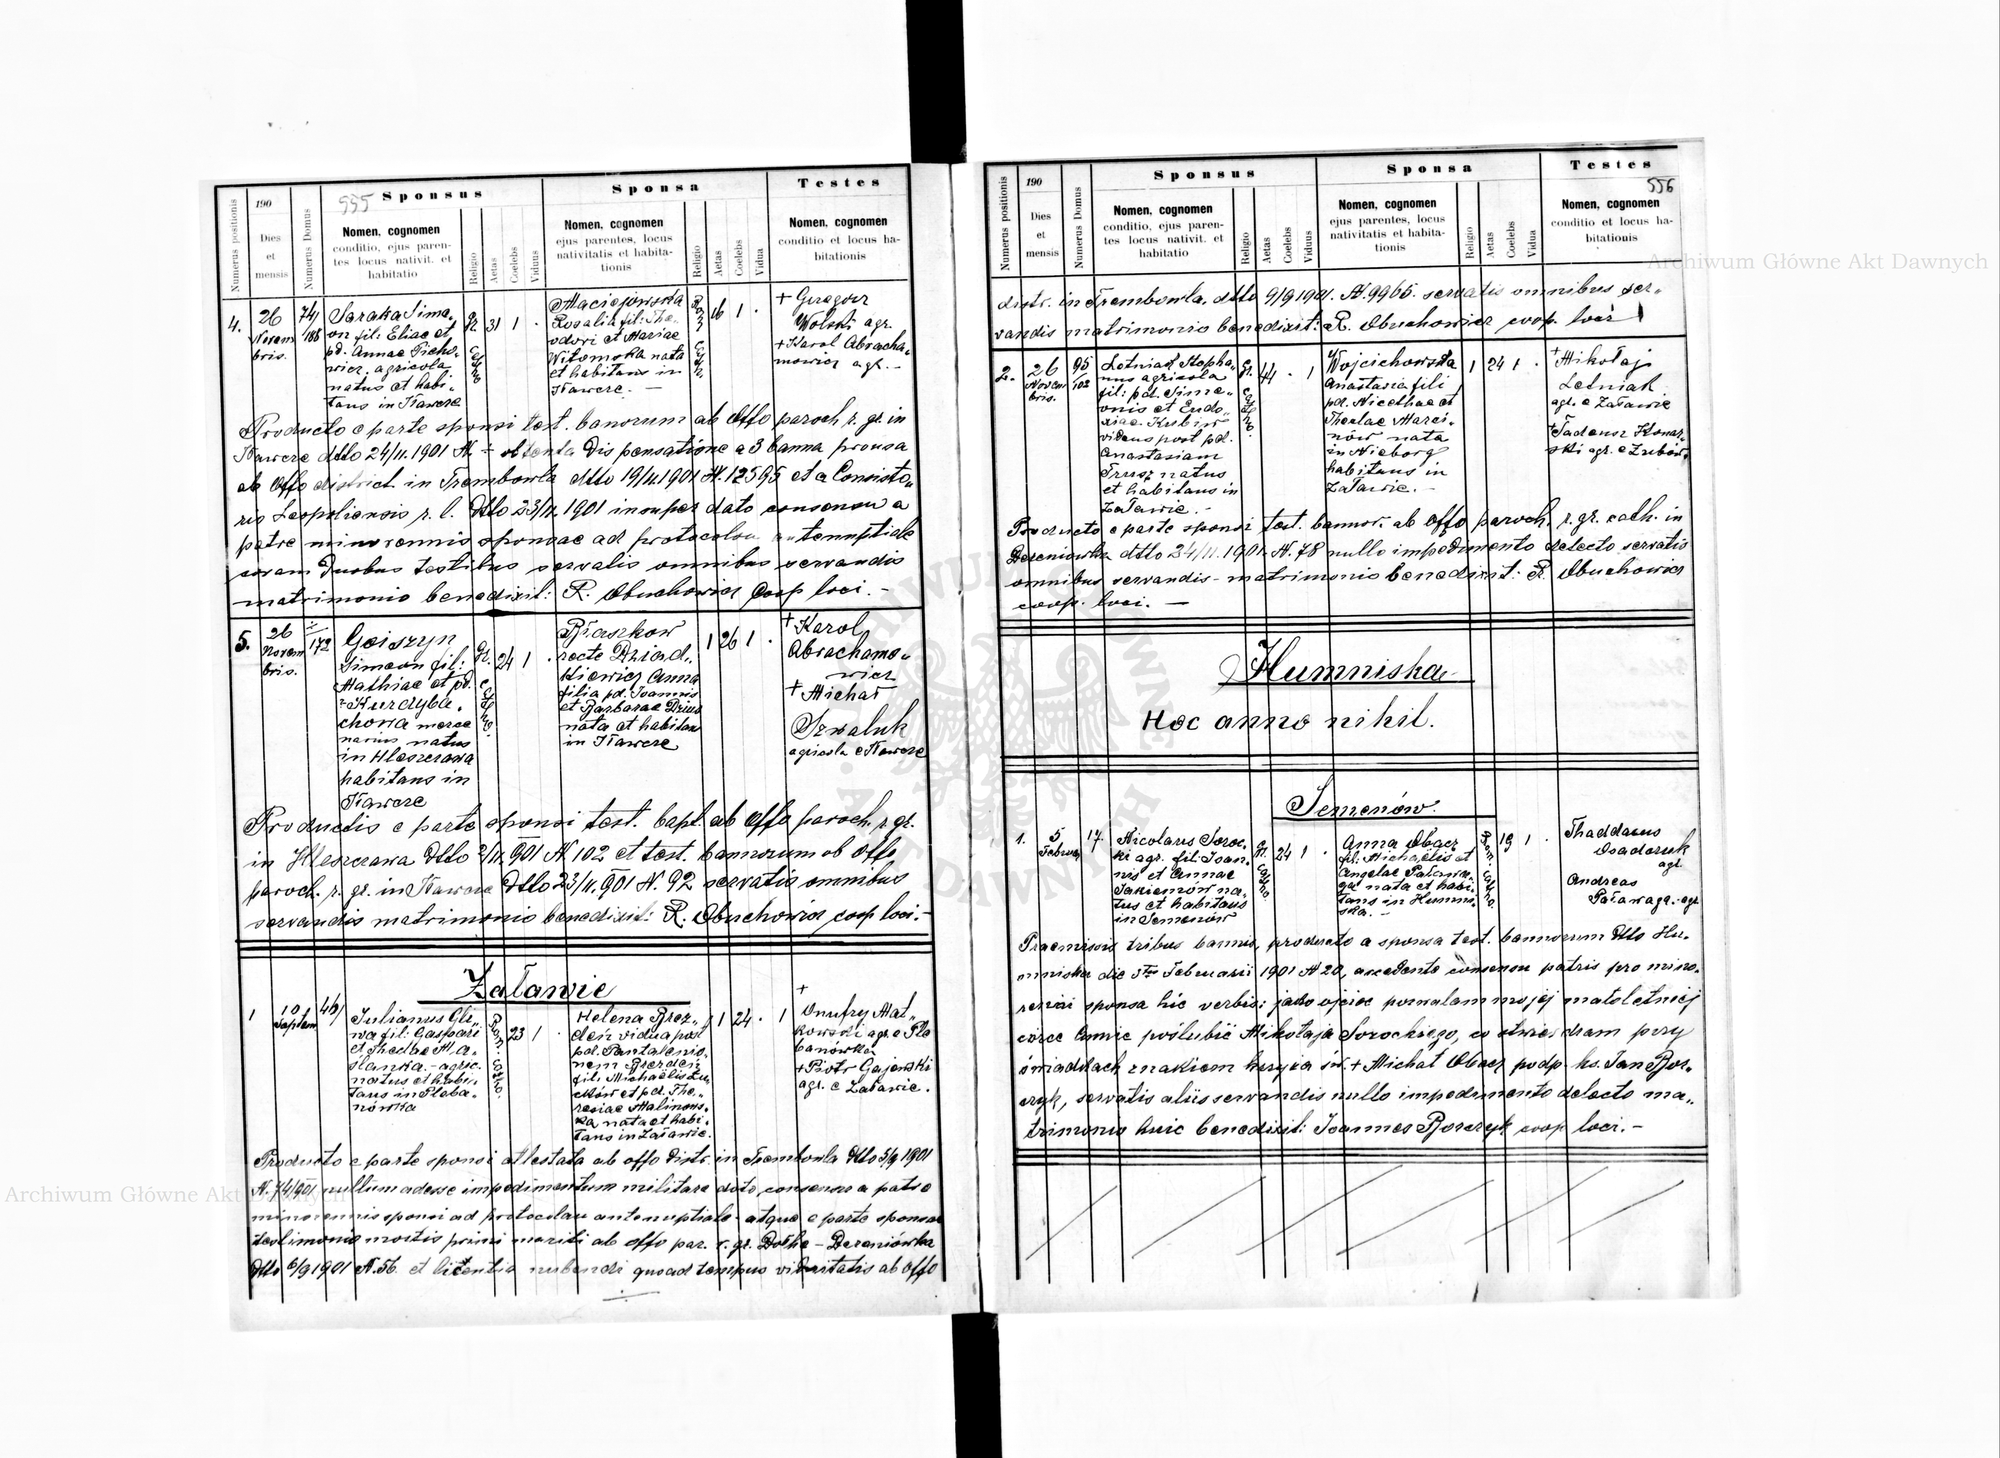 Archiwum Główne Akt Dawnych
Numerus positionis
190
Dies
et
mensis
Numerus Domus
535
Sponsus
Nomen, cognomen
conditio, ejus paren-
tes locus nativit. et
habitatio
Religio
Aetas
Coelebs
Viduus
Sponsa
Nomen, cognomen
ejus parentes, locus
nativitatis et habita-
tionis
Religio
Aetas
Coelebs
Vidua
Testes
Nomen, cognomen
conditio et locus ha-
bitationis
4.
26
Novem
bris.
74/
188
Saraka Sime-
on fil. Eliae et
pd. Annae Picho-
wicz, agricola
natus et habi-
tans in Iławcze
Gr.
cath.
31
1
.
Maciejowska
Rosalia fil: The-
odori et Mariae
Witomska nata
et habitans in
Iławcze. -
Rom
cath.
16
1
.
+ Grzegorz
Wolski agr.
+ Karol Abracha-
mowicz agr. -
Producto e parte sponsi test. banorum ab Offo paroch r. gr. in
Iławcze dtto 24/11. 1901 N. ÷ obtenta Dispensatione a 3 banna prousa
ab Offo district in Trembowla dtto 19/11. 1901 N. 12595 et a Consisto-
rio Leopoliensis r. l. Dtto 23/11. 1901 insuper dato consensu a
patre minorennis sponsae ad protocolon antenuptiale
coram Duobus testibus servatis omnibus servandis
matrimonio benedixit: R. Obuchowicz Coop loci. -
5.
26
Novem
bris.
172
Simeon fil:
Mathiae et pd.
chowa merce
narius natus
in Hleszczawa
habitans in
Iławcze
Gr.
cath.
24
1
.
recte Dziad-
kiewicz Anna
filia pd. Joannis
et Barbarae
nata et habitan
in Iławcze
1
26
1
.
+ Karol
Abrachamo-
wicz
+ Michał
Szwaluk
agricola e Iławcze
Productis e parte sponsi test. bapt. ab Offo paroch. r. gr.
in Hleszczawa Dtto 2/11. 901 N 102 et test. bannorum ab Offo
paroch. r. gr. in Iławcze Dtto 23/11. 901 N. 92 servatis omnibus
servandis matrimonio benedixit: R. Obuchowicz coop loci. -
Załawie
1
10
Septem
46/
Julianus Gli-
wa fil. Casparis
et Theclae Ma-
slanka. - agric.
natus et habi-
tans in Pleba-
nówka
Rom. cath.
23
1
.
Helena Brez-
deń vidua post
pd. Pantalemo-
nem Brezdeń
fil. Michaelis
et pd. The-
resiae Malinows-
ka nata et habi-
tans in Załawie.
1
24
.
1
+
Onufry Mat-
kowski agr. e Ple
banówka
+ Piotr Gajewski
agr. e Załawie.
Producto e parte sponsi attestata ab offo Distr. in Trembowla Dtto 5/9 1901
N. 74/901 nullum adesse impedimentum militare dato, consensu a patre
minorennis sponsi ad protocolau antenuptiale atque e parte sponsae
testimonio mortis primi mariti ab offo par. r. gr. Dołhe - Dereniówka
Dtto 6/9 1901 N. 56. et licentia nubendi quoad tempus viduitatis ab Offo
Numerus positionis
190
Dies
et
mensis
Numerus Domus
Sponsus
Nomen, cognomen
conditio, ejus paren-
tes locus nativit. et
habitatio
Religio
Aetas
Coelebs
Viduus
Sponsa
Nomen, cognomen
ejus parentes, locus
nativitatis et habita-
tionis
Religio
Aetas
Coelebs
Vidua
Testes
556
Nomen, cognomen
conditio et locus ha-
bitationis
Archiwum Główne Akt Dawnych
distr. in Trembowla. dtto 9/9 1901. N. 9965. servatis omnibus ser-
vandis matrimonio benedixit: R. Obuchowicz coop. loci
2.
26
Novem
bris.
95
/102
Letniak Stepha-
nus agricola
fil: pd. Sime-
onis et Eudo-
xiae Kubiw
viduus post pd.
Anastasiam
Trusz natus
et habitans in
Załawie. -
Gr.
cath.
44
.
1
Wojciechowska
Anastasia fili
pd. Nicethae et
Theclae Marci-
nów nata
in Nieborg
habitans in
Załawie. -
1
24
1
.
+ Mikołaj
Letniak
agr. e Załawie
+ Tadeusz Konar-
ski agr. e Zubów
Producto e parte sponsi test. bannor. ab Offo paroch. r. gr. cath. in
Dereniowka dtto 24/11. 1901. N. 78 nullo impedimento detecto servatis
omnibus servandis - matrimonio benedixit: R. Obuchowicz
coop. loci. -
Humniska
Hoc anno nihil.
Semenów.
1.
5
Februar
17.
Nicolaus Soroc-
ki agr. fil. Joan-
nis et Annae
Jakiemów na-
tus et habitans
in Semenów
Gr.
cath.
24
1
.
Anna Obacz
fil. Michaelis et
Angelae Patawa-
ga nata et habi-
tans in Humni-
ska. -
Rom.
cath.
19
1
.
Thaddaeus
Osadczuk
agr
Andreas
Patawaga. agr
Praemissis tribus bannis, producto a sponsa test. bannorum Dtto Hu-
mniska die 5ta Februarii 1901 N 20, accedente consensu patris pro mino-
renni sponsa hic verbis: jako ojciec pozwalam mojej małoletniej
córce Annie poślubić Mikołaja Sorockiego, co stwierdzam przy
świadkach znakiem krzyża św. + Michał Obacz podp. ks. Jan Borczyk,
servatis aliis servandis nullo impedimento detecto ma-
trimonio huic benedixit: Joannes Borczyk coop. loci. -
Archiwum Główne Akt Dawnych